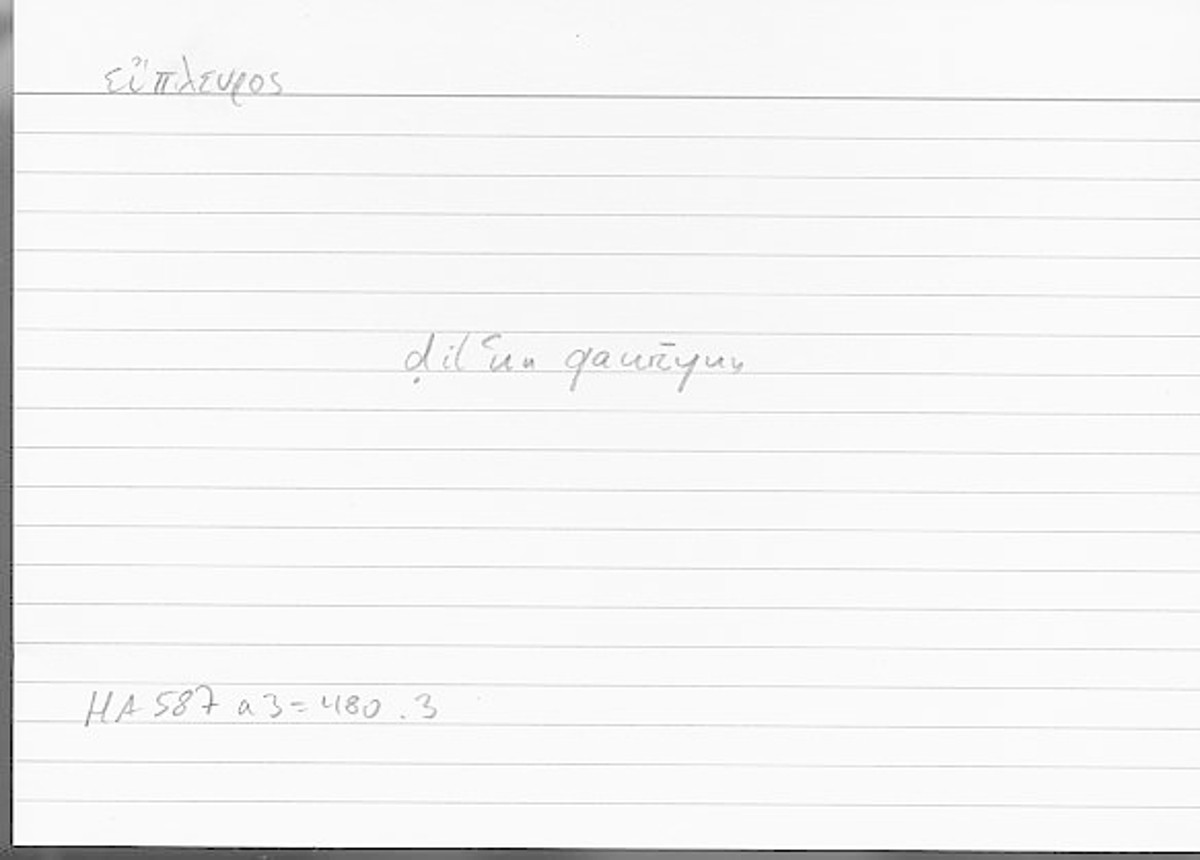 εὔπλευρος
ḍilʿun qawīyun
HA 587 a 3 = 480.3